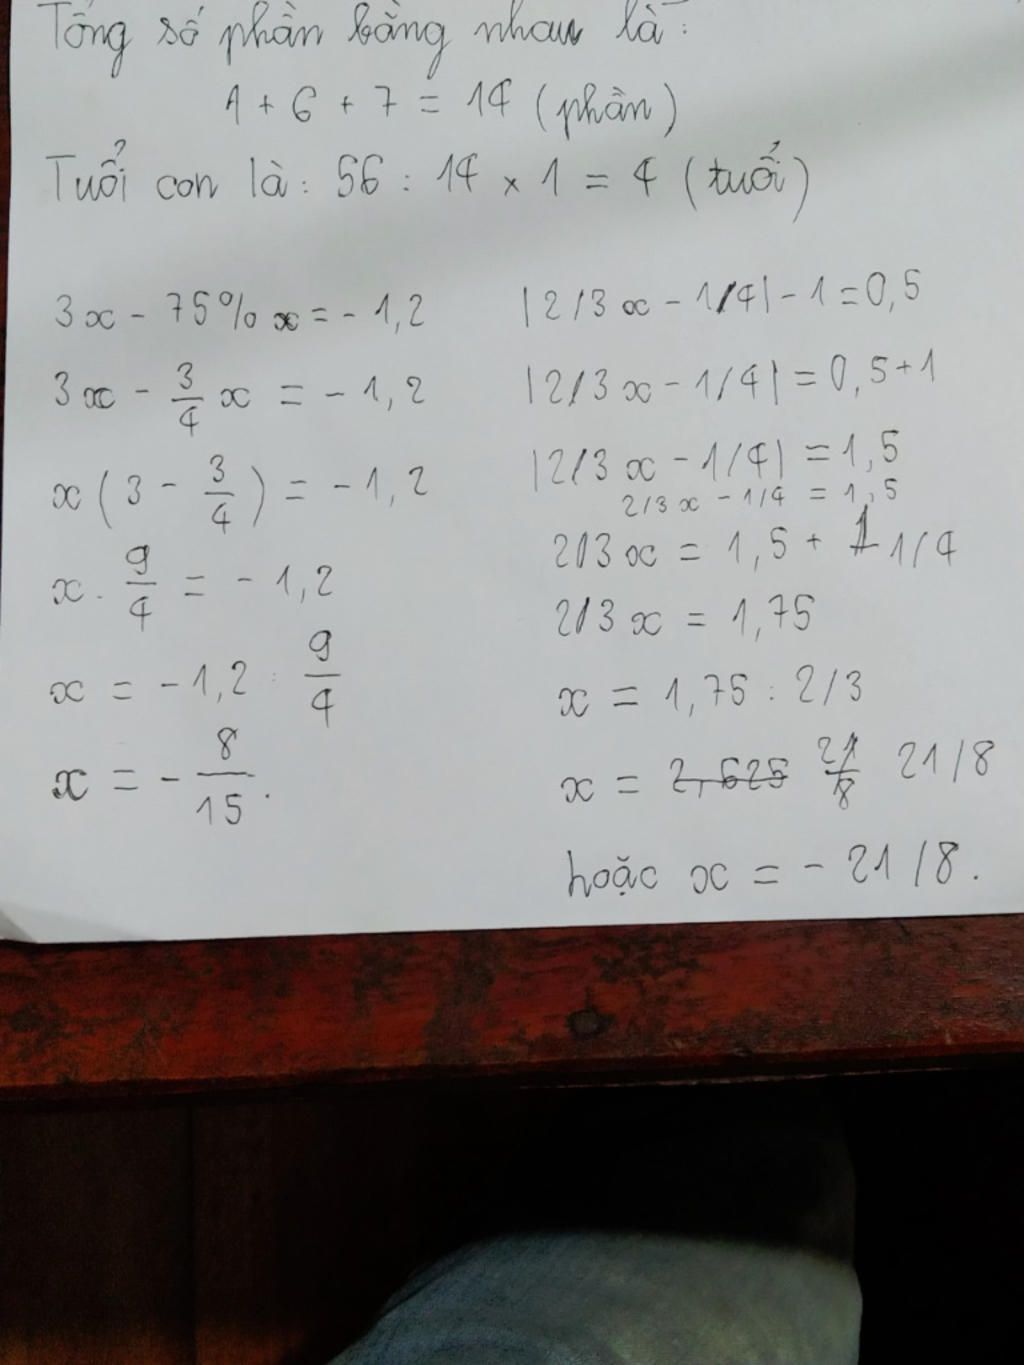 Tổng số phần bằng nhau là:
1 + 6 + 7 = 14 (phần)
Tuổi con là: 56 : 14 × 1 = 4 (tuổi)
3x - 75% x = - 1,2
3x - 3/4 x = - 1,2
x (3 - 3/4) = - 1,2
x . 9/4 = - 1,2
x = - 1,2 : 9/4
x = - 8/15 .
|2/3 x - 1/4| - 1 = 0,5
|2/3 x - 1/4| = 0,5 + 1
|2/3 x - 1/4| = 1,5
2/3 x - 1/4 = 1,5
2/3 x = 1,5 + 1/4
2/3 x = 1,75
x = 1,75 : 2/3
x = 2,625 21/8 21/8
hoặc x = - 21/8.